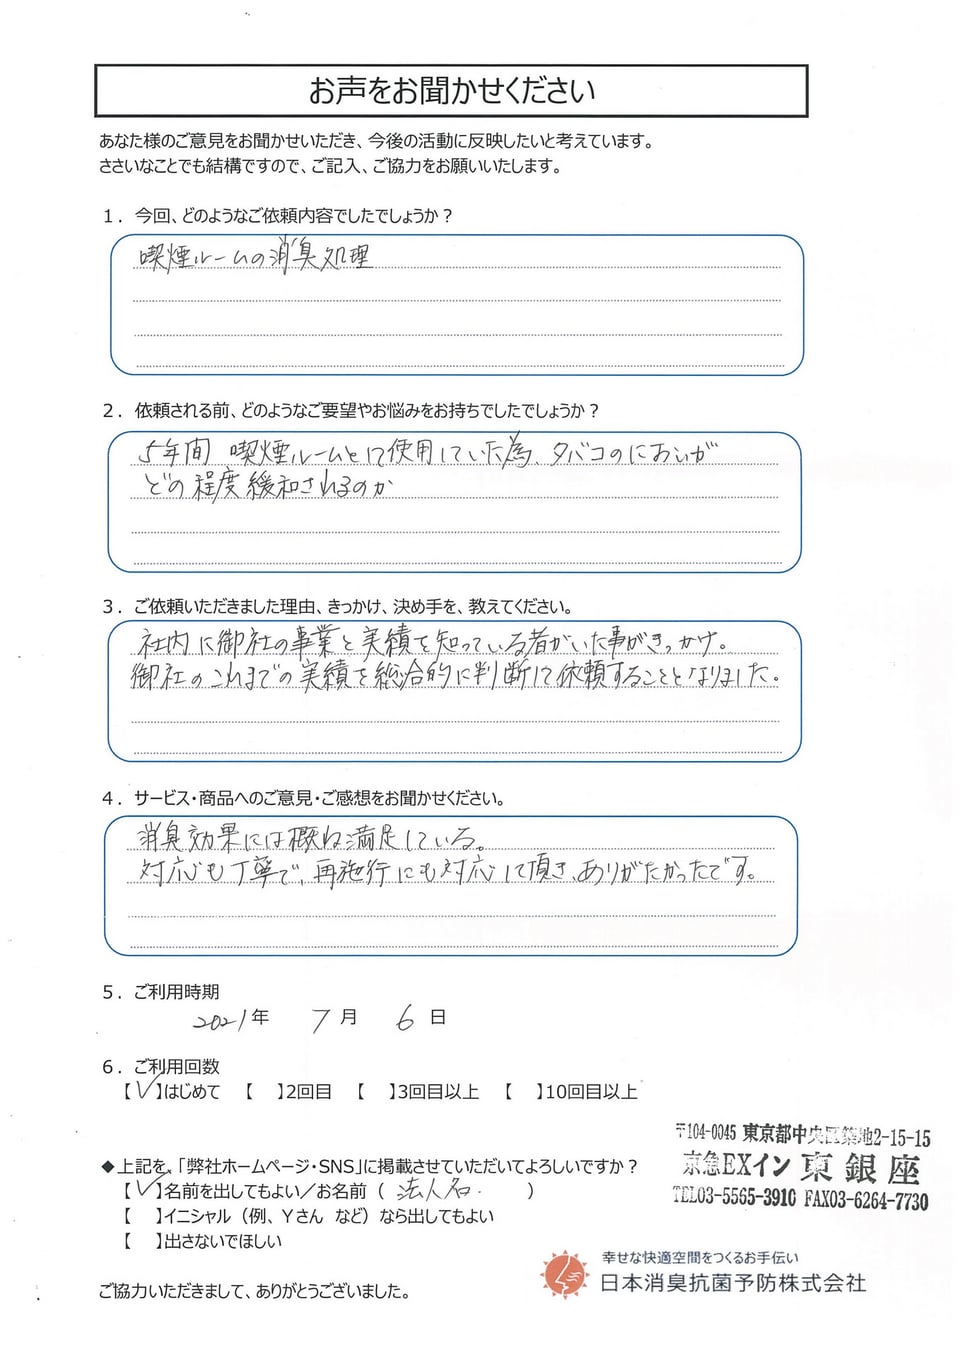 お声をお聞かせください
あなた様のご意見をお聞かせいただき、今後の活動に反映したいと考えています。
ささいなことでも結構ですので、ご記入、ご協力をお願いいたします。
1．今回、どのようなご依頼内容でしたでしょうか？
喫煙ルームの消臭処理
2．依頼される前、どのようなご要望やお悩みをお持ちでしたでしょうか？
5年間 喫煙ルームとして使用していた為、タバコのにおいが
どの程度緩和されるのか
3．ご依頼いただきました理由、きっかけ、決め手を、教えてください。
社内に御社の事業と実績を知っている者がいた事がきっかけ。
御社のこれまでの実績を総合的に判断して依頼することとなりました。
4．サービス・商品へのご意見・ご感想をお聞かせください。
消臭効果には概ね満足している。
対応も丁寧で、再施行にも対応して頂き、ありがたかったです。
5．ご利用時期
2021年 7月 6日
6．ご利用回数
【✓】はじめて 【 】2回目 【 】3回目以上 【 】10回目以上
◆上記を、「弊社ホームページ・SNS」に掲載させていただいてよろしいですか？
【✓】名前を出してもよい／お名前（ 法人名. ）
【 】イニシャル（例、Yさん など）なら出してもよい
【 】出さないでほしい
〒104-0045 東京都中央区築地2-15-15
京急EXイン 東銀座
TEL03-5565-3910 FAX03-6264-7730
幸せな快適空間をつくるお手伝い
日本消臭抗菌予防株式会社
ご協力いただきまして、ありがとうございました。